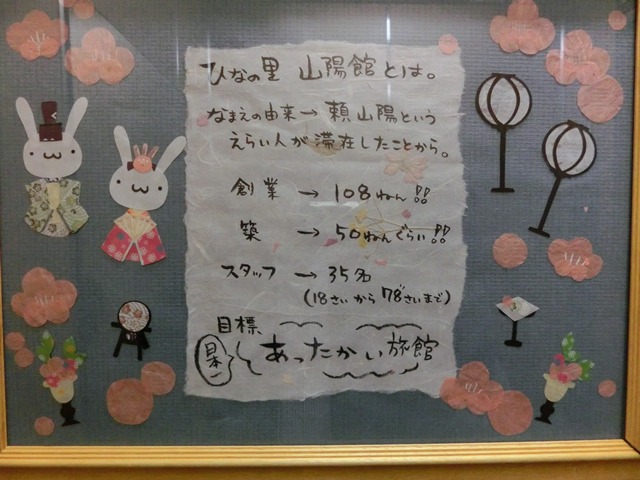 ひなの里 山陽館とは。
なまえの由来→頼山陽という
えらい人が滞在したことから。
創業 → 108ねん!!
築 → 50ねんぐらい!!
スタッフ → 35名
(18さいから78さいまで)
目標
日本一 あったかい旅館